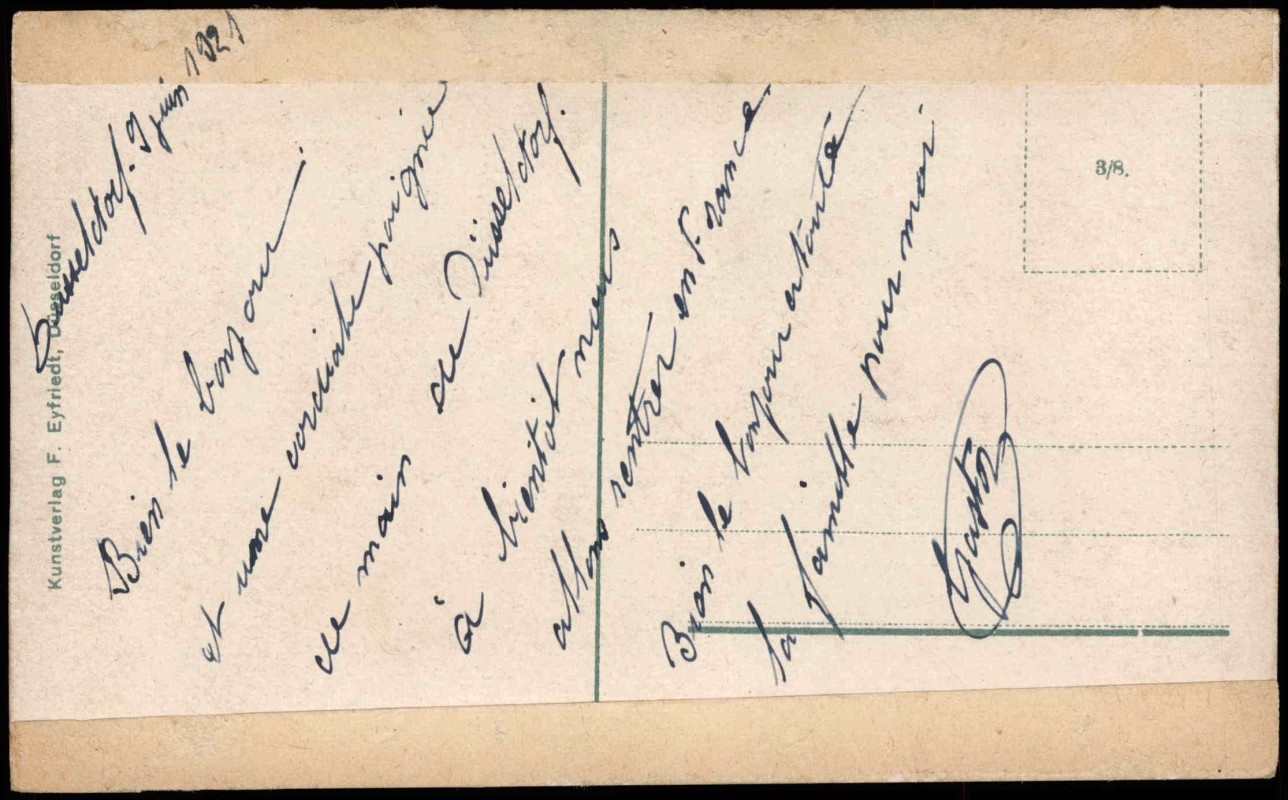 Dusseldorf. 9 juin 1921
Bien le bonjour
et une cordiale poignée
de main de Düsseldorf.
à bientôt nous
allons rentrer en France.
Bien le bonjour a toute
la famille pour moi
Gaston
Kunstverlag F. Eyfriedt, Düsseldorf
3/8.